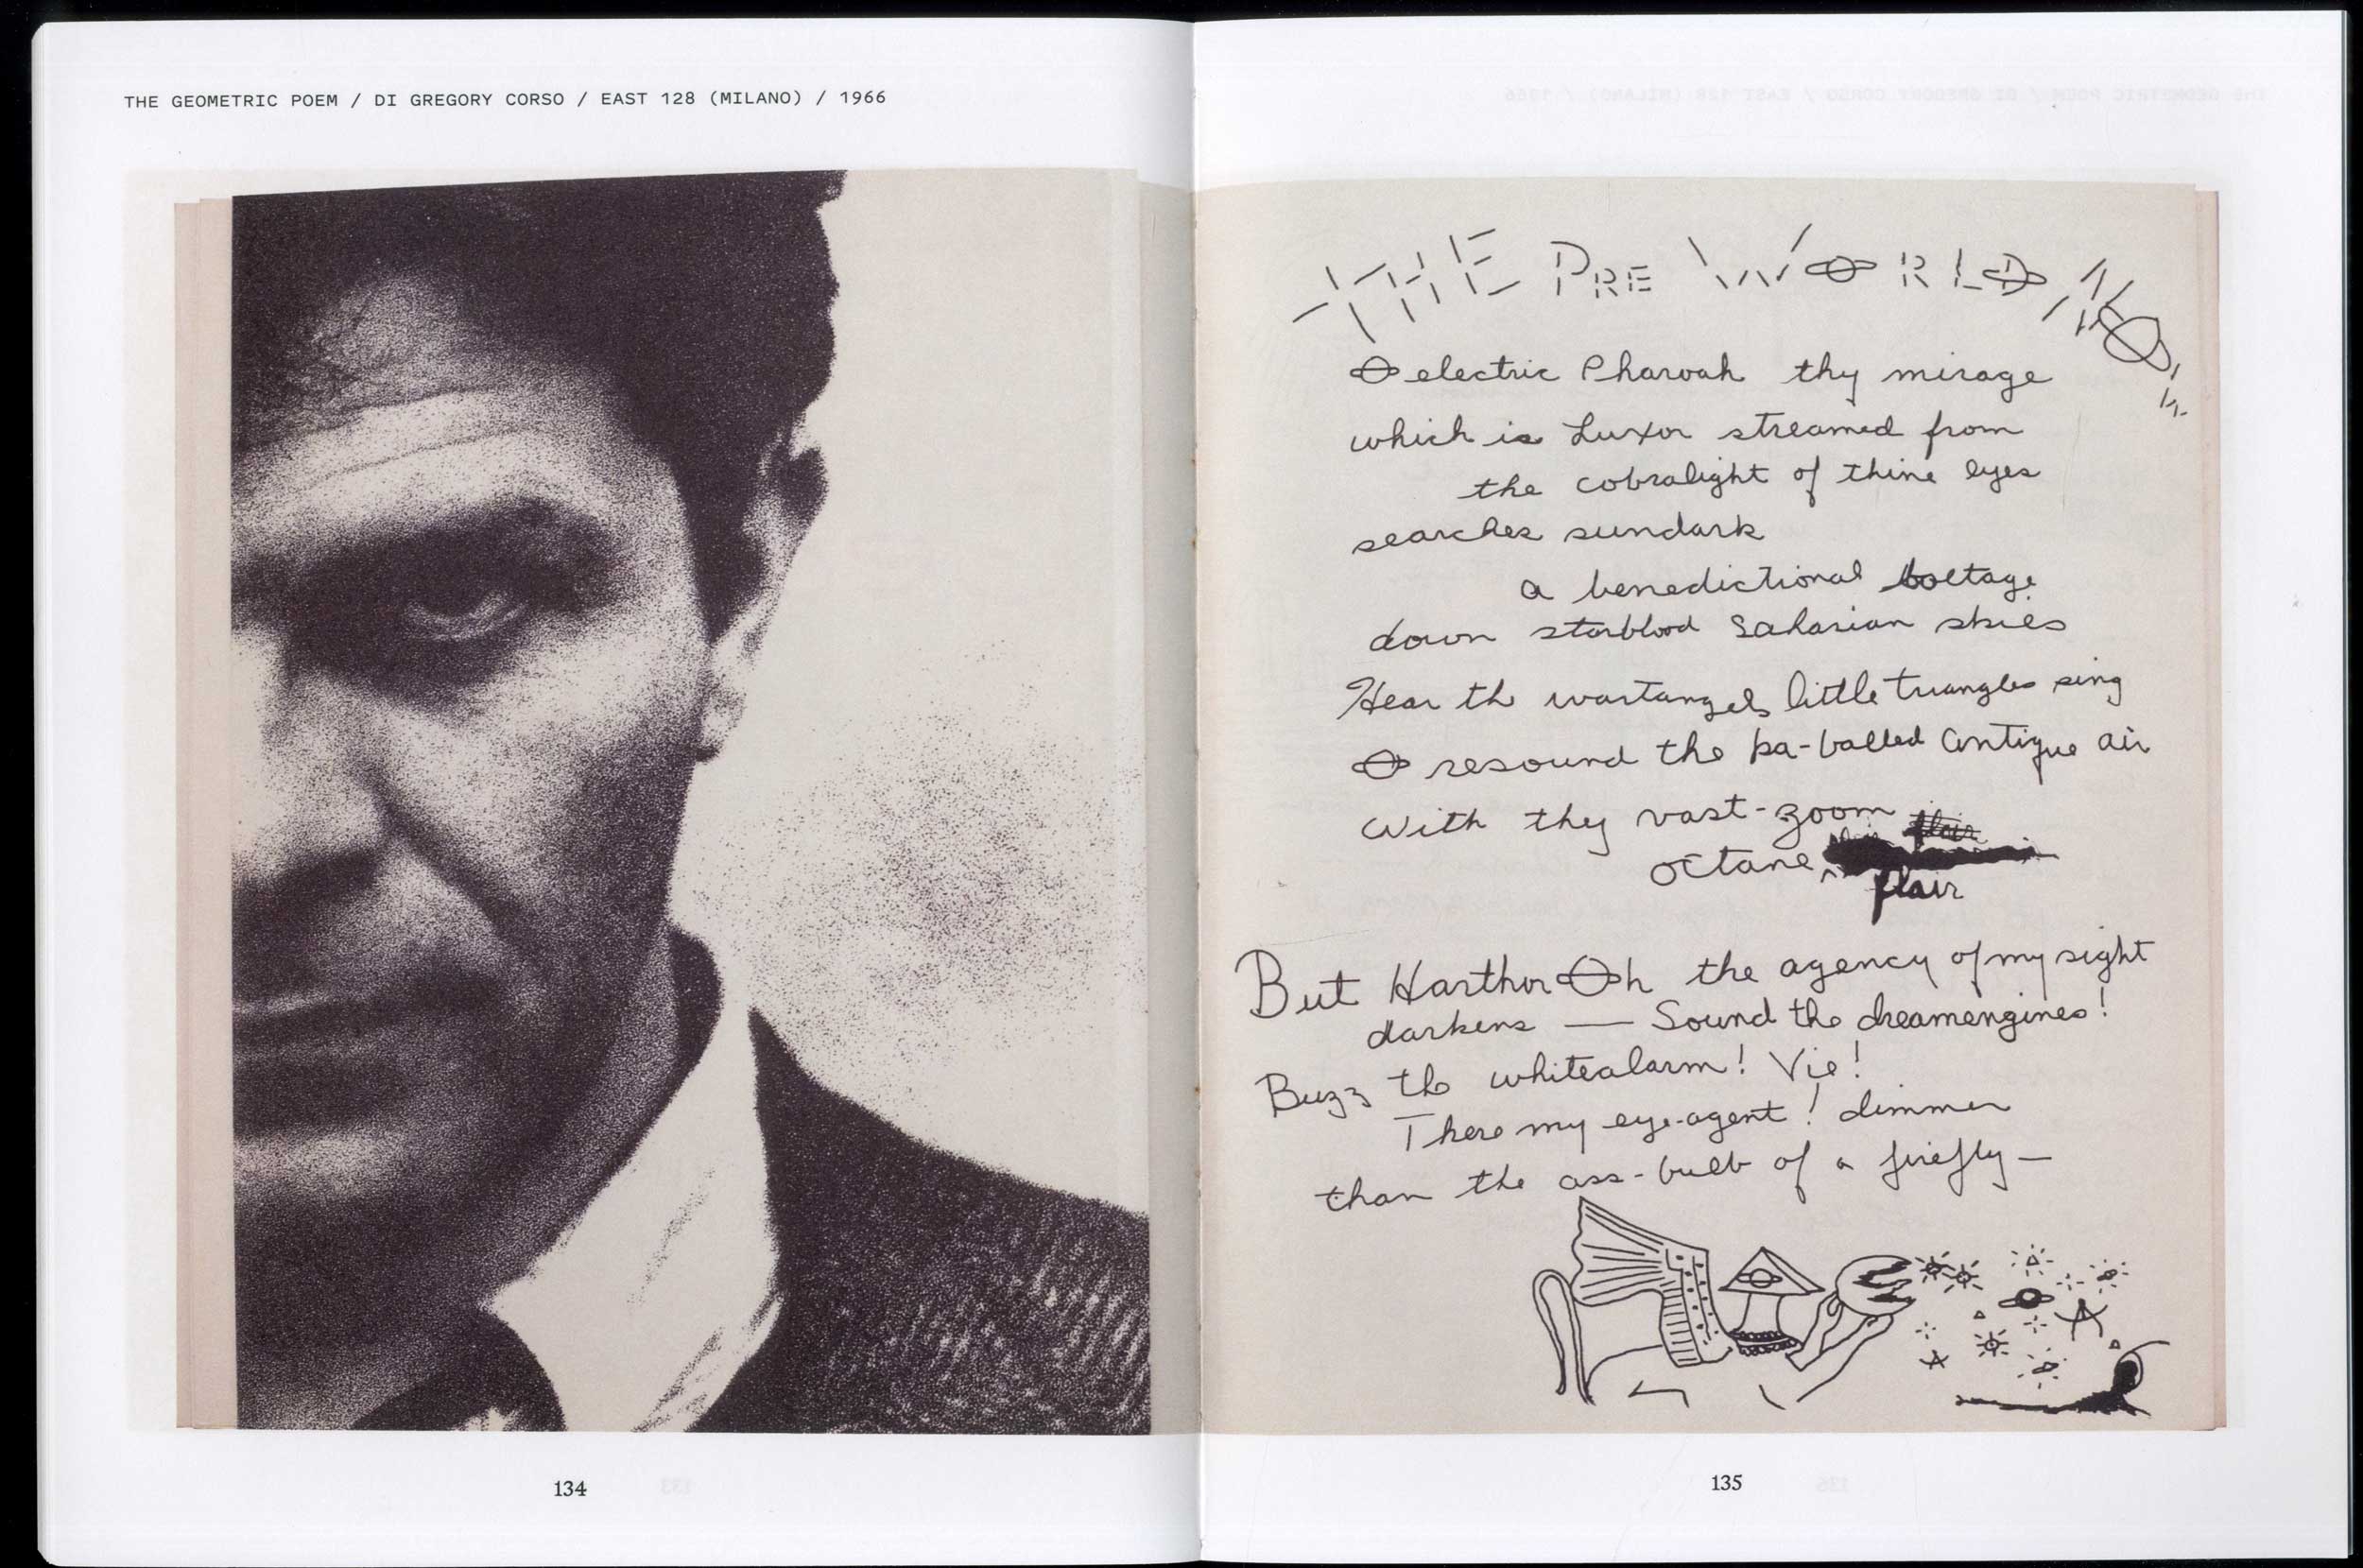 THE GEOMETRIC POEM / DI GREGORY CORSO / EAST 128 (MILANO) / 1966
THE PRE WORLD
O electric Pharoah thy mirage
which is Luxor streamed from
the cobralight of thine eyes
searches sundark
a benedictional voltage
down starblood Saharian skies
Hear th wartangels little triangles sing
O resound the ba-balled antique air
With thy vast-zoom flair
octane
flair
But Harthor Oh the agency of my sight
darkens — Sound the dreamengines!
Buzz the whitealarm! Vie!
There my eye-agent! dimmer
than the ass-bulb of a firefly —
134
135